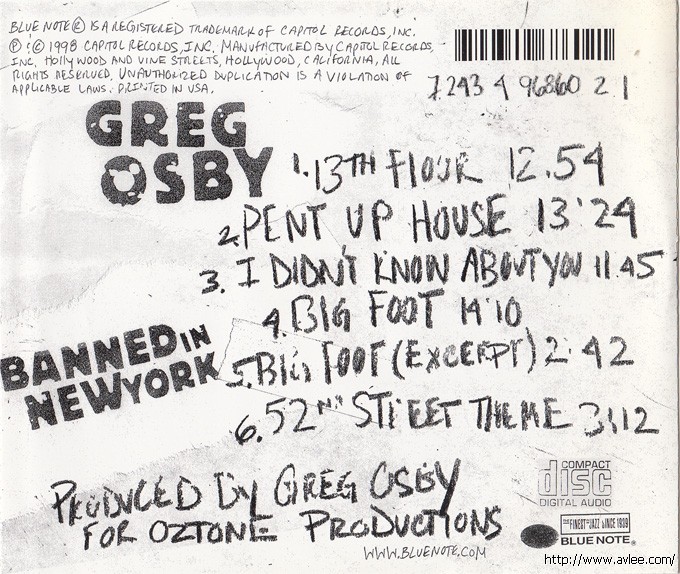 BLUE NOTE® IS A REGISTERED TRADEMARK OF CAPITOL RECORDS, INC.
℗ & © 1998 CAPITOL RECORDS, INC. MANUFACTURED BY CAPITOL RECORDS,
INC. HOLLYWOOD AND VINE STREETS, HOLLYWOOD, CALIFORNIA, ALL
RIGHTS RESERVED. UNAUTHORIZED DUPLICATION IS A VIOLATION OF
APPLICABLE LAWS. PRINTED IN USA.
7 2434 96860 2 1
GREG
OSBY
1. 13TH FLOOR 12.54
2. PENT UP HOUSE 13'24
3. I DIDN'T KNOW ABOUT YOU 11.45
4. BIG FOOT 14'10
5. BIG FOOT (EXCERPT) 2:42
6. 52ND STREET THEME 3:12
BANNED IN
NEW YORK
PRODUCED BY GREG OSBY
FOR OZTONE PRODUCTIONS
WWW.BLUENOTE.COM
COMPACT
disc
DIGITAL AUDIO
THE FINEST IN JAZZ SINCE 1939
BLUE NOTE®
http://www.avlee.com/